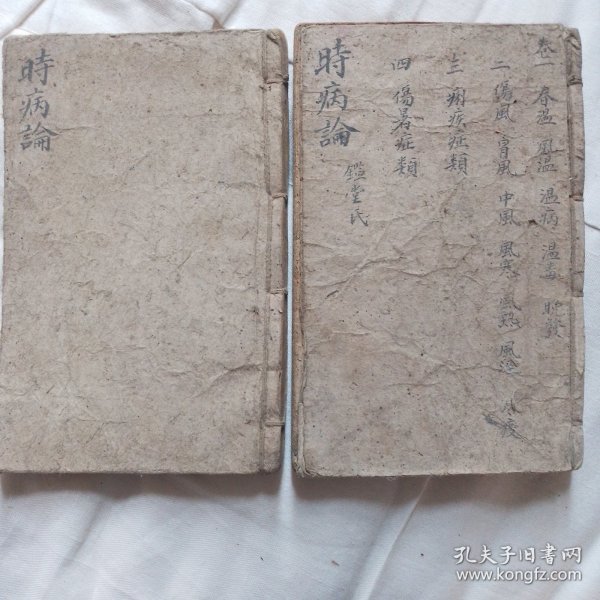 時病論
卷一 春温 風温 温病 温毒
二 傷風 冒風 中風 風寒 風熱 風湿
三 痢疾症類
四 傷暑症類
時病論
鑑堂氏
孔夫子旧书网
www.kongfz.com